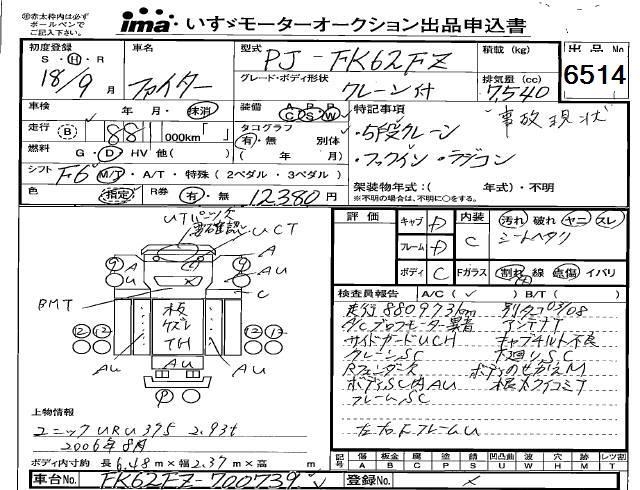 ㊟赤太枠内は必ず
ボールペンで
ご記入下さい。
ima いすゞモーターオークション出品申込書
初度登録 車名 型式 PJ-FK62FZ 積載 (kg) 出品No
S・H・R
18/9 月 ファイター グレード・ボディ形状 クレーン付 排気量 (cc) 7,540 6514
車検 年 月・抹消 装備 A/C P/S P/W 特記事項 事故現状
走行 B 88 000km タコグラフ 有・無 別体 ・5段クレーン
燃料 G・D HV 他( ) ( 年 月) ・フックイン ・ラジコン
シフト F6 M/T・A/T・特殊(2ペダル・3ペダル) 架装物年式:( 年式)・不明
色 指定 R券 有・無 12380 円 ※不明の場合は、不明に○をする。
評価 キャブ D 内装 C 汚れ 破れ ヤニ スレ
シートヘタリ
フレーム D
ボディ C Fガラス 割れ 線 飛傷 イバリ
UTパーツ欠
要確認
UCT
A
AU
C
BMT
板
ケズレ
TH
Au
検査員報告 A/C(✓) B/T( )
走行880973km 別タコ03/08
A/Cブロアモーター異音 アンテナT
サイドガードUCH キャブチルト不良
クレーンSC 下廻りSC
Rフェンダーズ ボディのせかえM
ボディSC内AU 根太クイコミT
フレームSC
左右Dフレーム U
上物情報
ユニックURU375 2.93t
2006年8月
ボディ内寸約 長6.48m×幅2.37m×高 m
記号 傷 板金 腐 塗 錆 凹凸曲 破 穴 跡 レツ割
A B C P S U W H M T
車台No. FK62FZ-700739 登録No. ×